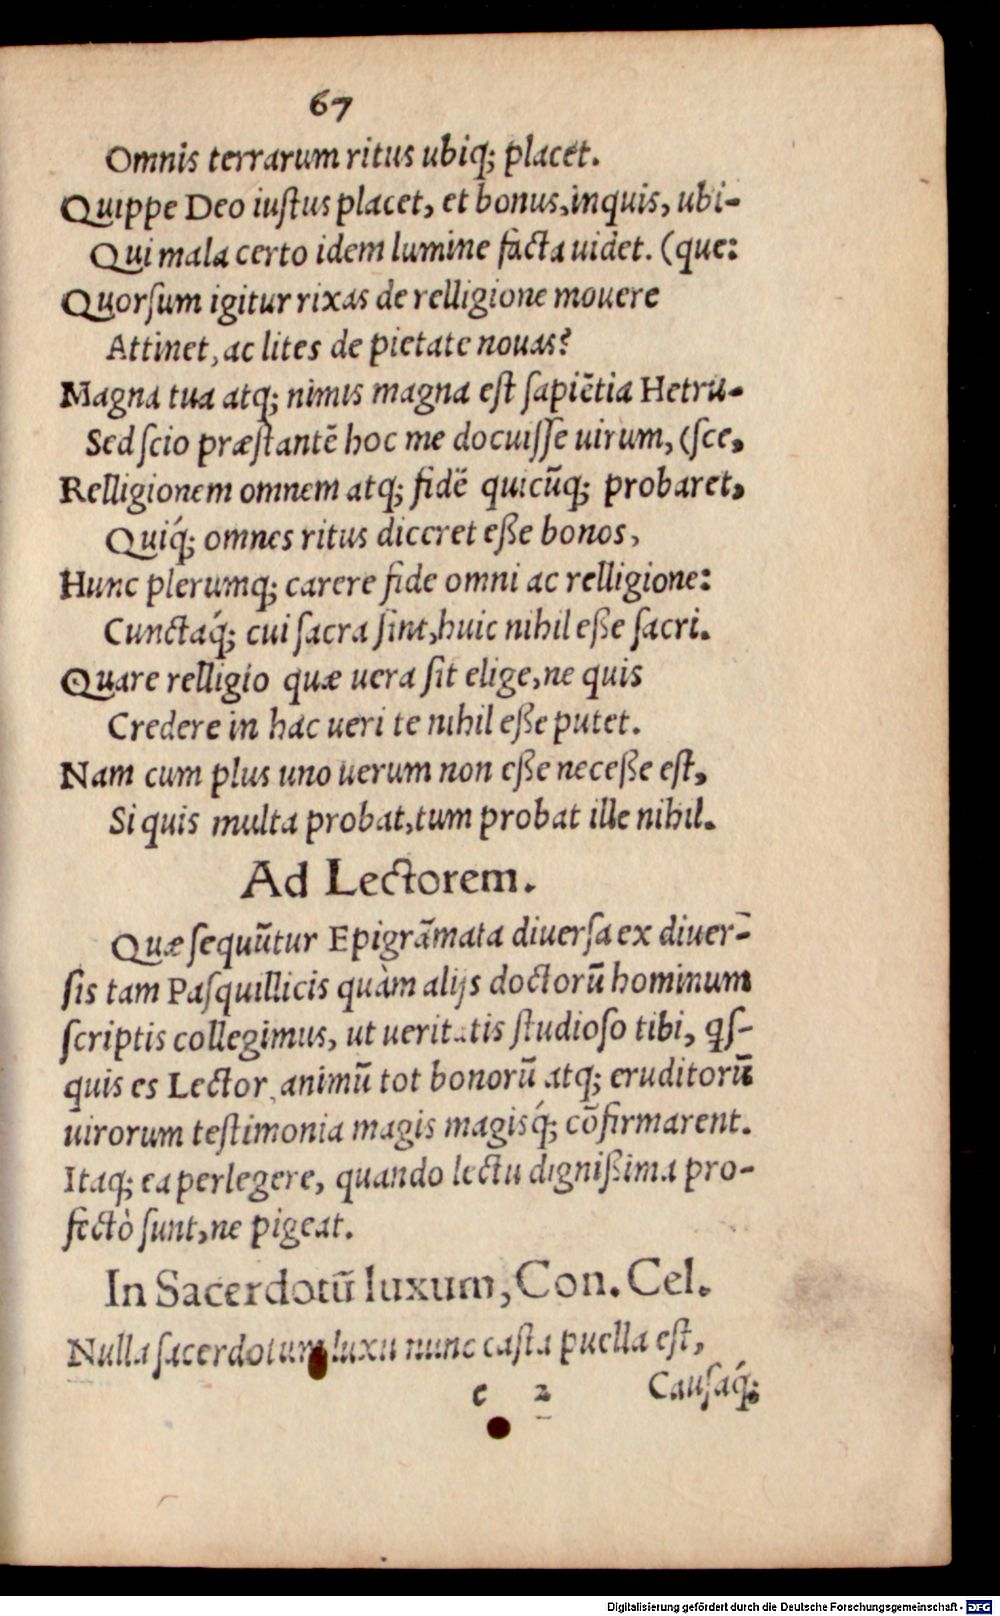 67
Omnis terrarum ritus ubiq; placet.
Quippe Deo iuſtus placet, et bonus, inquis, ubi-
Qui mala certo idem lumine facta uidet. (que:
Quorſum igitur rixas de relligione mouere
Attinet, ac lites de pietate nouas?
Magna tua atq; nimis magna est ſapiẽtia Hetru-
Sed ſcio præſtantẽ hoc me docuiſſe uirum, (ſce,
Relligionem omnem atq; fidẽ quicũq; probaret,
Quiq́; omnes ritus diceret eße bonos,
Hunc plerumq; carere fide omni ac relligione:
Cunctaq́; cui ſacra ſint, huic nihil eße ſacri.
Quare relligio quæ uera ſit elige, ne quis
Credere in hac ueri te nihil eße putet.
Nam cum plus uno uerum non eße neceße eſt,
Si quis multa probat, tum probat ille nihil.
Ad Lectorem.
Quæ ſequũtur Epigrãmata diuerſa ex diuer-
ſis tam Paſquillicis quàm alijs doctorũ hominum
ſcriptis collegimus, ut ueritatis ſtudioſo tibi, qͥſ-
quis es Lector, animũ tot bonorũ atq; eruditorũ
uirorum teſtimonia magis magisq́; cõfirmarent.
Itaq; ea perlegere, quando lectu digniſſima pro-
fectò ſunt, ne pigeat.
In Sacerdotũ luxum, Con. Cel.
Nulla ſacerdotum luxu nunc caſta puella eſt,
e 2 Cauſaq́;
Digitalisierung gefördert durch die Deutsche Forschungsgemeinschaft - DFG